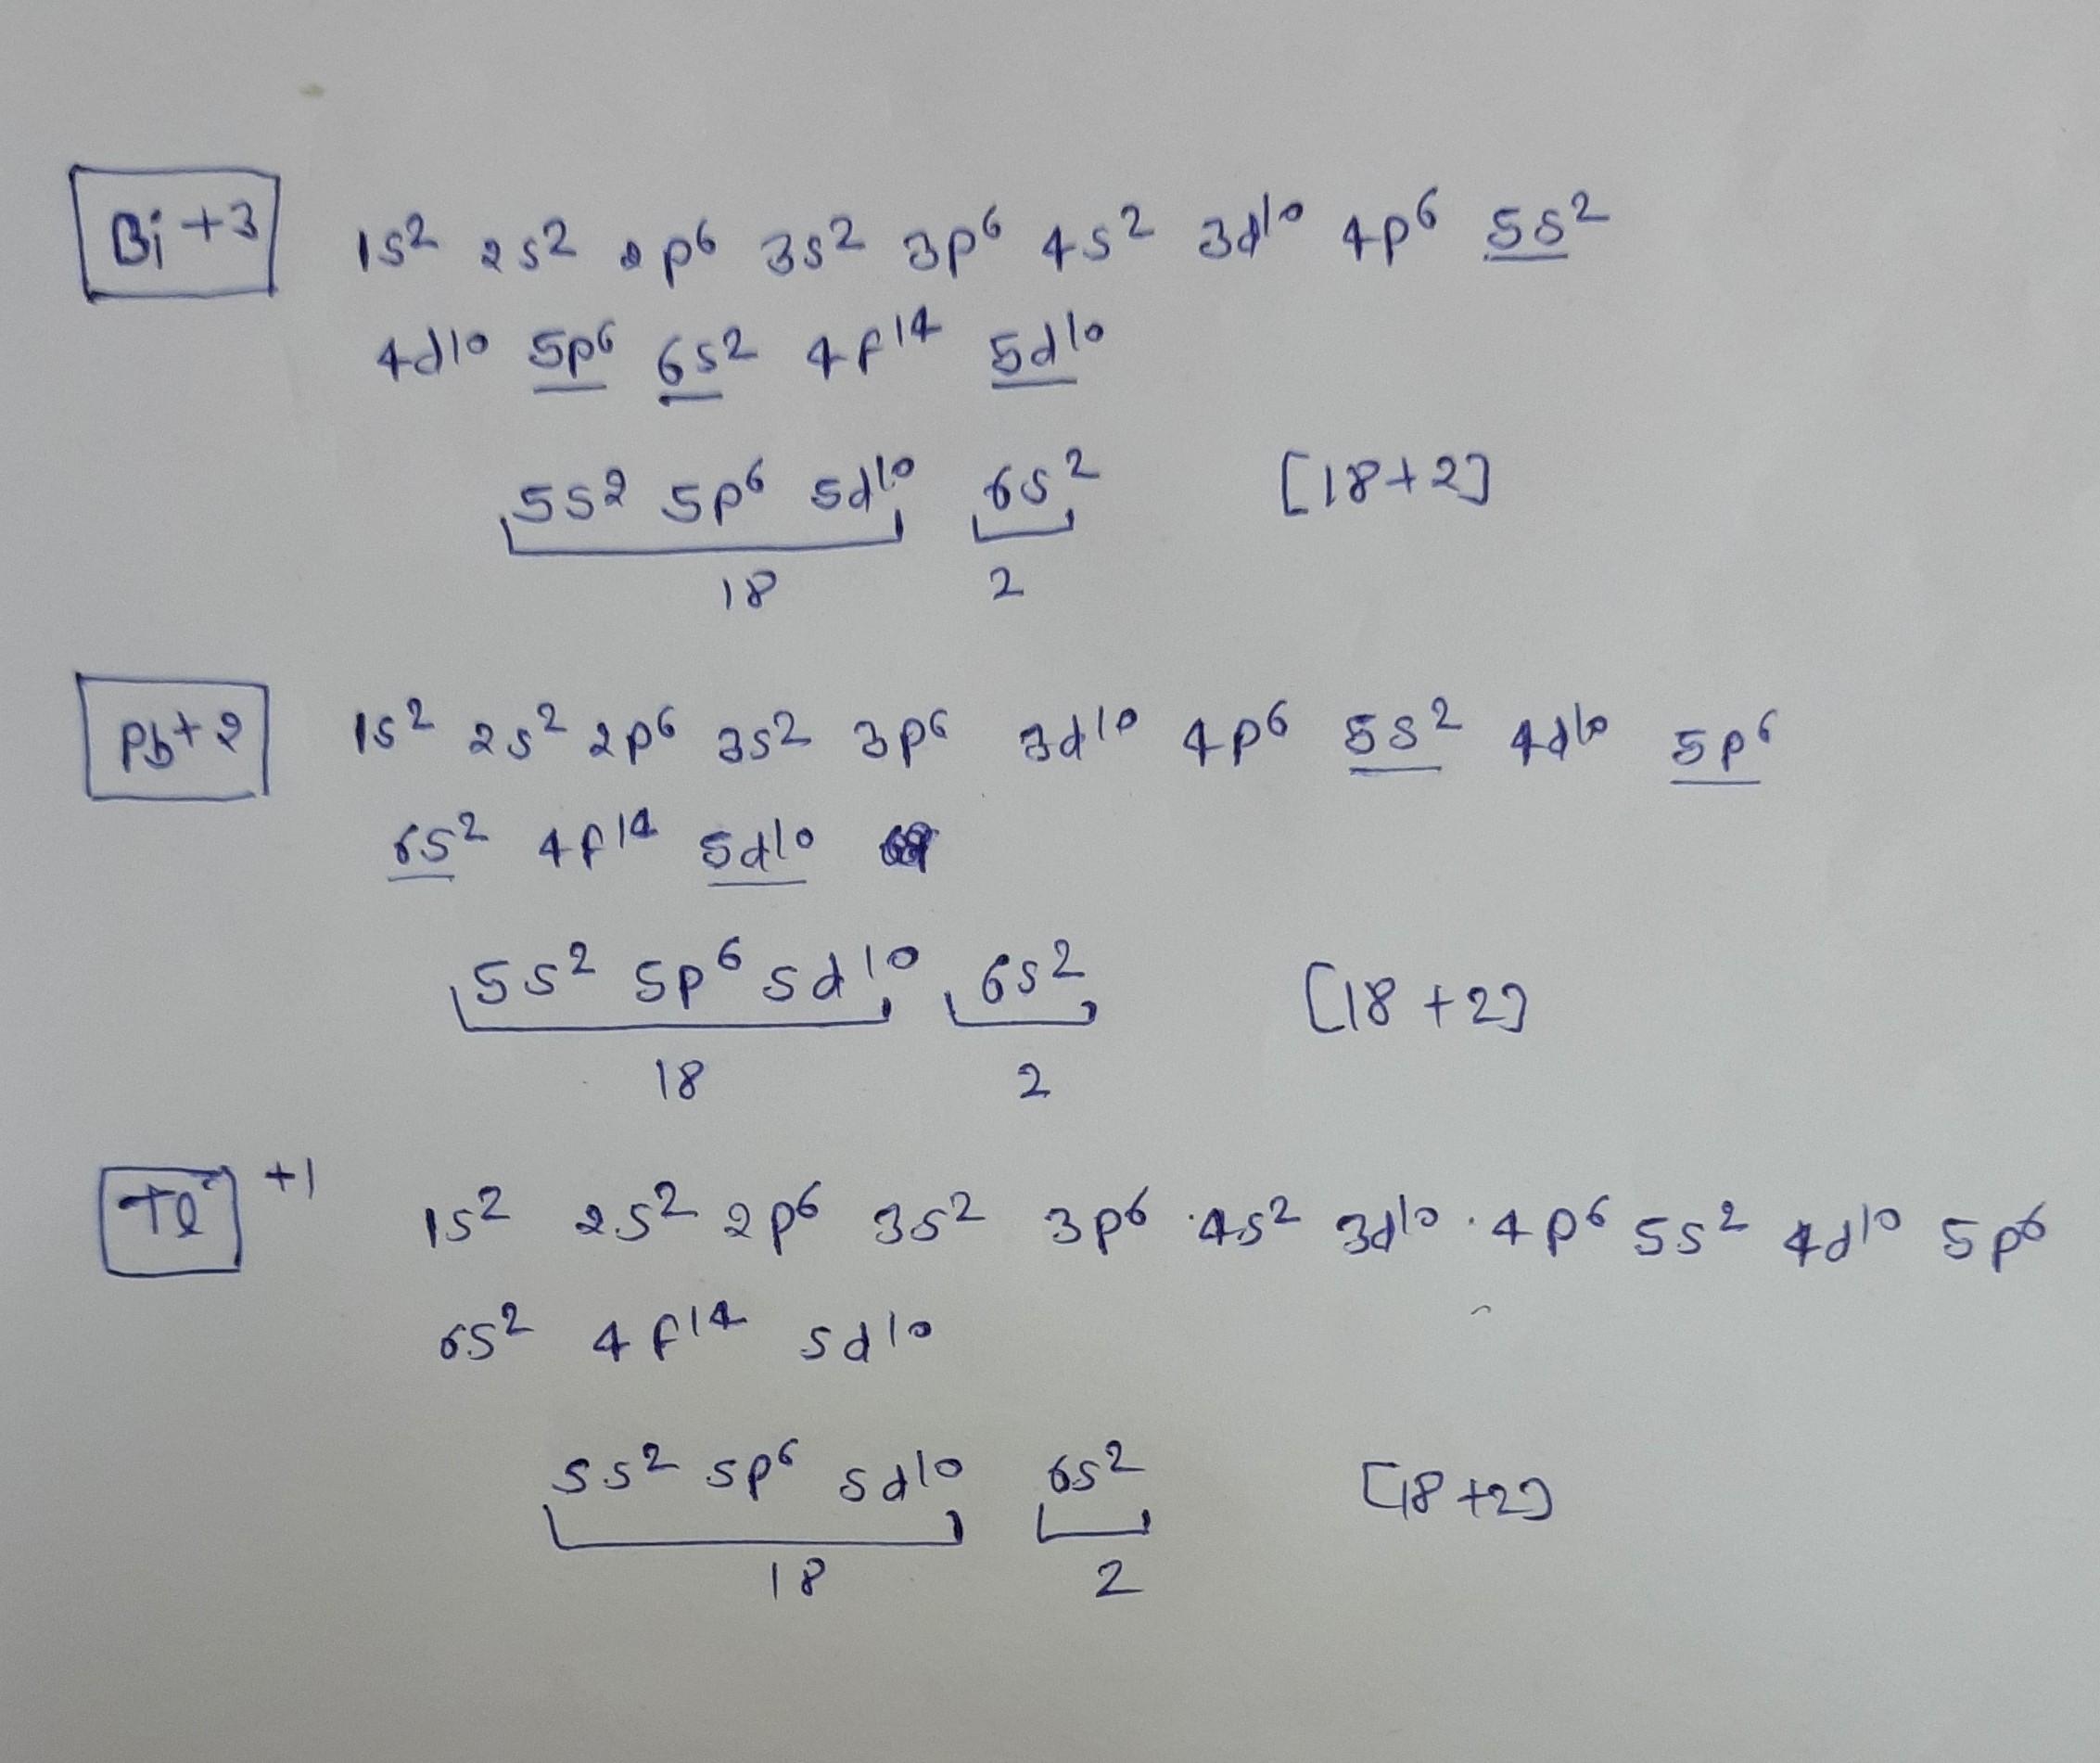 Bi +3 1s² 2s² 2p⁶ 3s² 3p⁶ 4s² 3d¹⁰ 4p⁶ 5s²
4d¹⁰ 5p⁶ 6s² 4f¹⁴ 5d¹⁰
5s² 5p⁶ 5d¹⁰ 6s² [18+2]
18 2
Pb+2 1s² 2s² 2p⁶ 3s² 3p⁶ 3d¹⁰ 4p⁶ 5s² 4d¹⁰ 5p⁶
6s² 4f¹⁴ 5d¹⁰
5s² 5p⁶ 5d¹⁰ 6s² [18+2]
18 2
Tl +1 1s² 2s² 2p⁶ 3s² 3p⁶ 4s² 3d¹⁰ 4p⁶ 5s² 4d¹⁰ 5p⁶
6s² 4f¹⁴ 5d¹⁰
5s² 5p⁶ 5d¹⁰ 6s² [18+2]
18 2